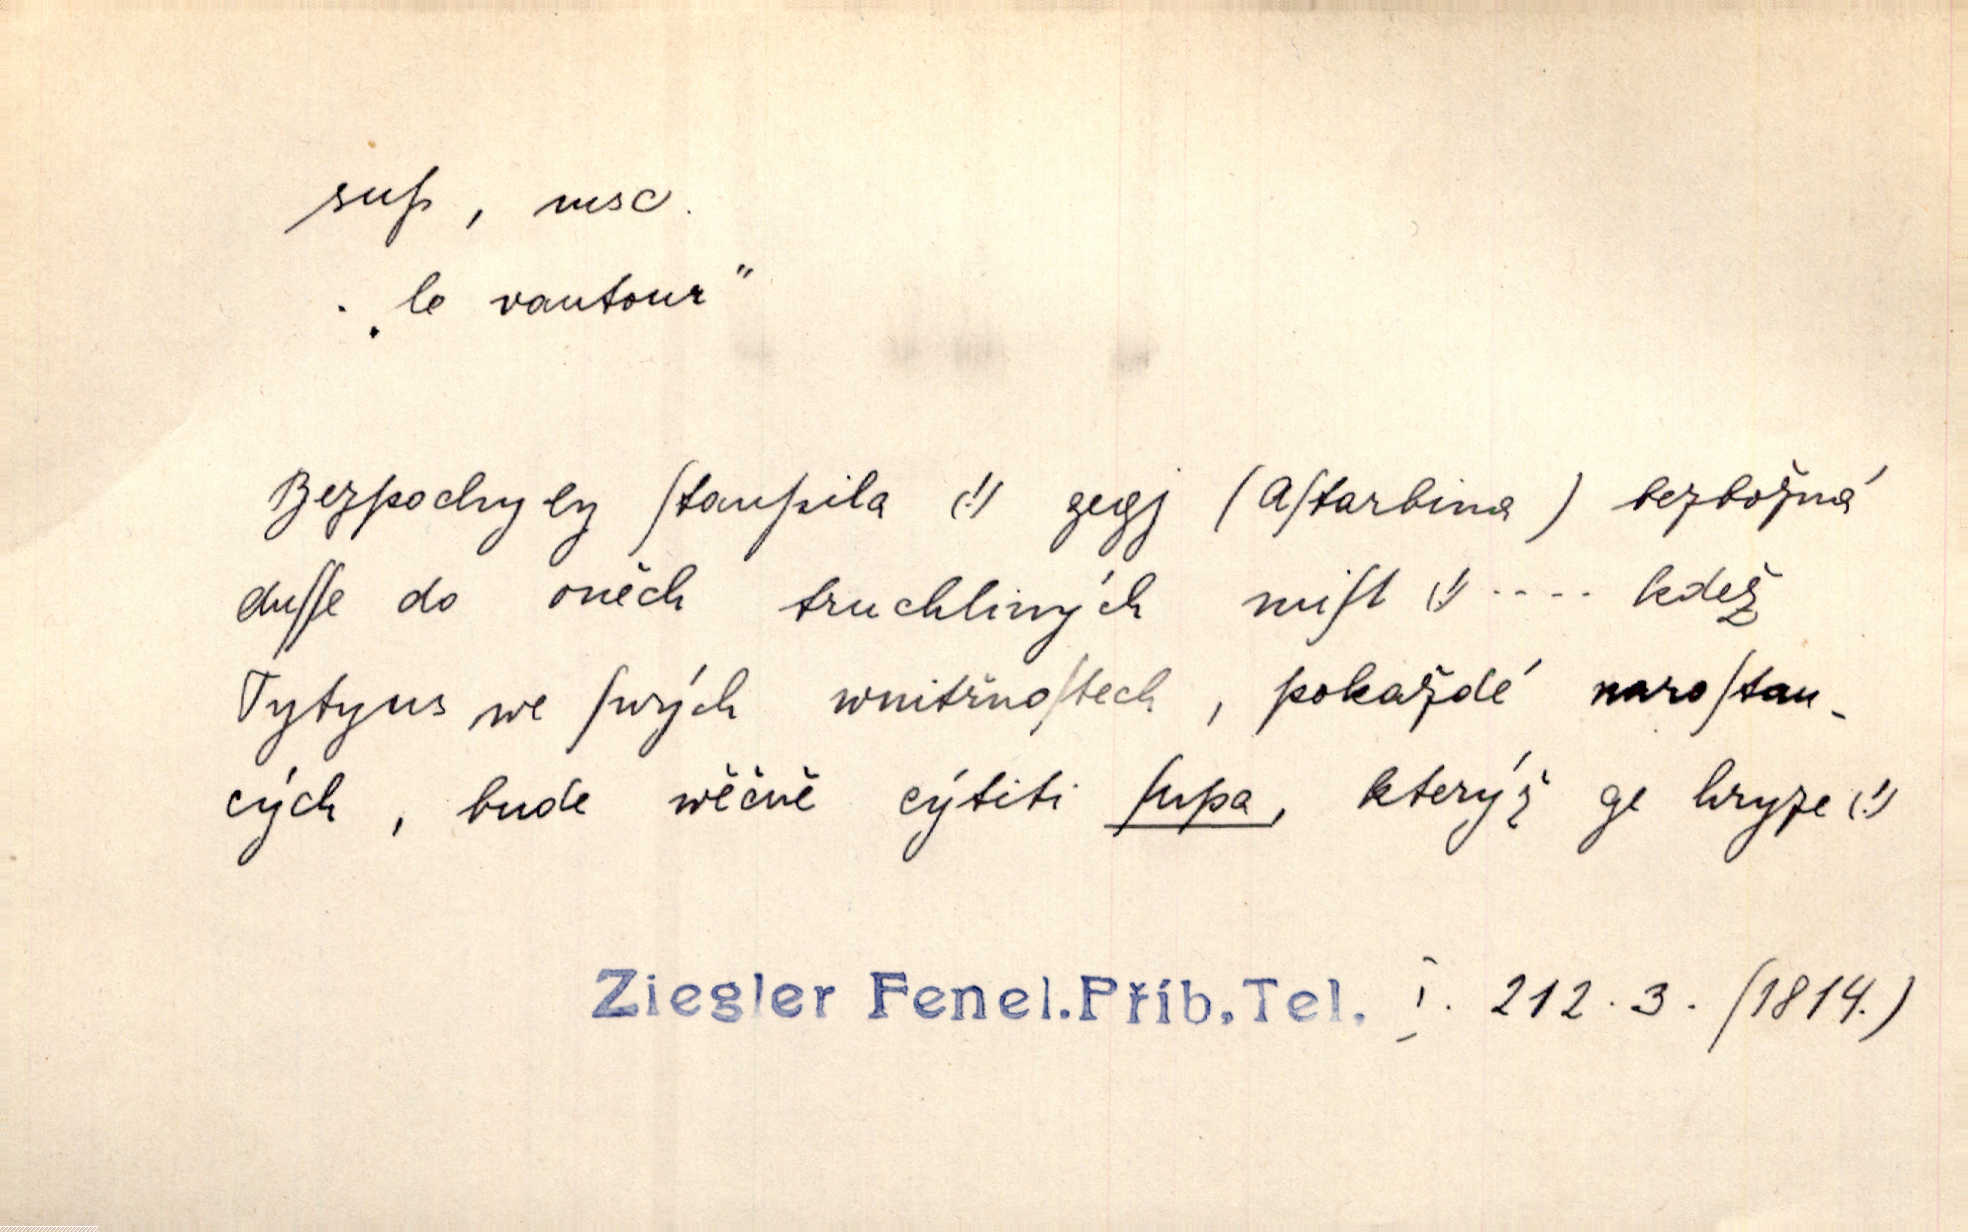 sup, msc.
„le vautour"
Bezpochyby ſtaupila (!) gegj (Aſtarbina) bezbožná
duſſe do oněch truchliných miſt (!) .... kdež
Tytyus we ſwých wnitřnoſtech, pokaždé naroſtau-
cých, bude věčně cýtiti ſupa, kterýž ge hryze (!)
Ziegler Fenel.Příb.Tel. I. 212.3. (1814.)